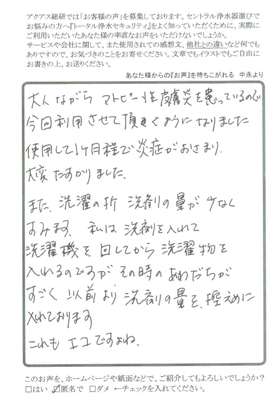 アクアス総研では「お客様の声」を募集しております。セントラル浄水器選びで
お悩みの方へ『トータル浄水セキュリティ』をよく知っていただくために、実際に
ご利用いただいたあなた様の率直なお声をいただけないでしょうか。
サービスや会社に関して、また使用されての感想文、他社との違いなど何でも
ありますので、お気づきのことをお寄せください。文章でもイラストでもご自由に
お書きの上、お送りください。
あなた様からの『お声』を待ちこがれる 中永より
大人ながら アトピー性皮膚炎を患っているので
今回利用させて頂くようになりました
使用して1ヶ月程で炎症がおさまり、
大変たすかりました。
また、洗濯の折 洗剤の量が少なく
すみます。私は洗剤を入れて
洗濯機を回してから洗濯物を
入れるのですが その時のあわだちが
すごく 以前より 洗剤の量を控えめに
入れております
これも エコですよね。
このお声を、ホームページや紙面などで、ご紹介してもよろしいでしょうか?
□はい ☑匿名で □ダメ ←チェックを入れてください。